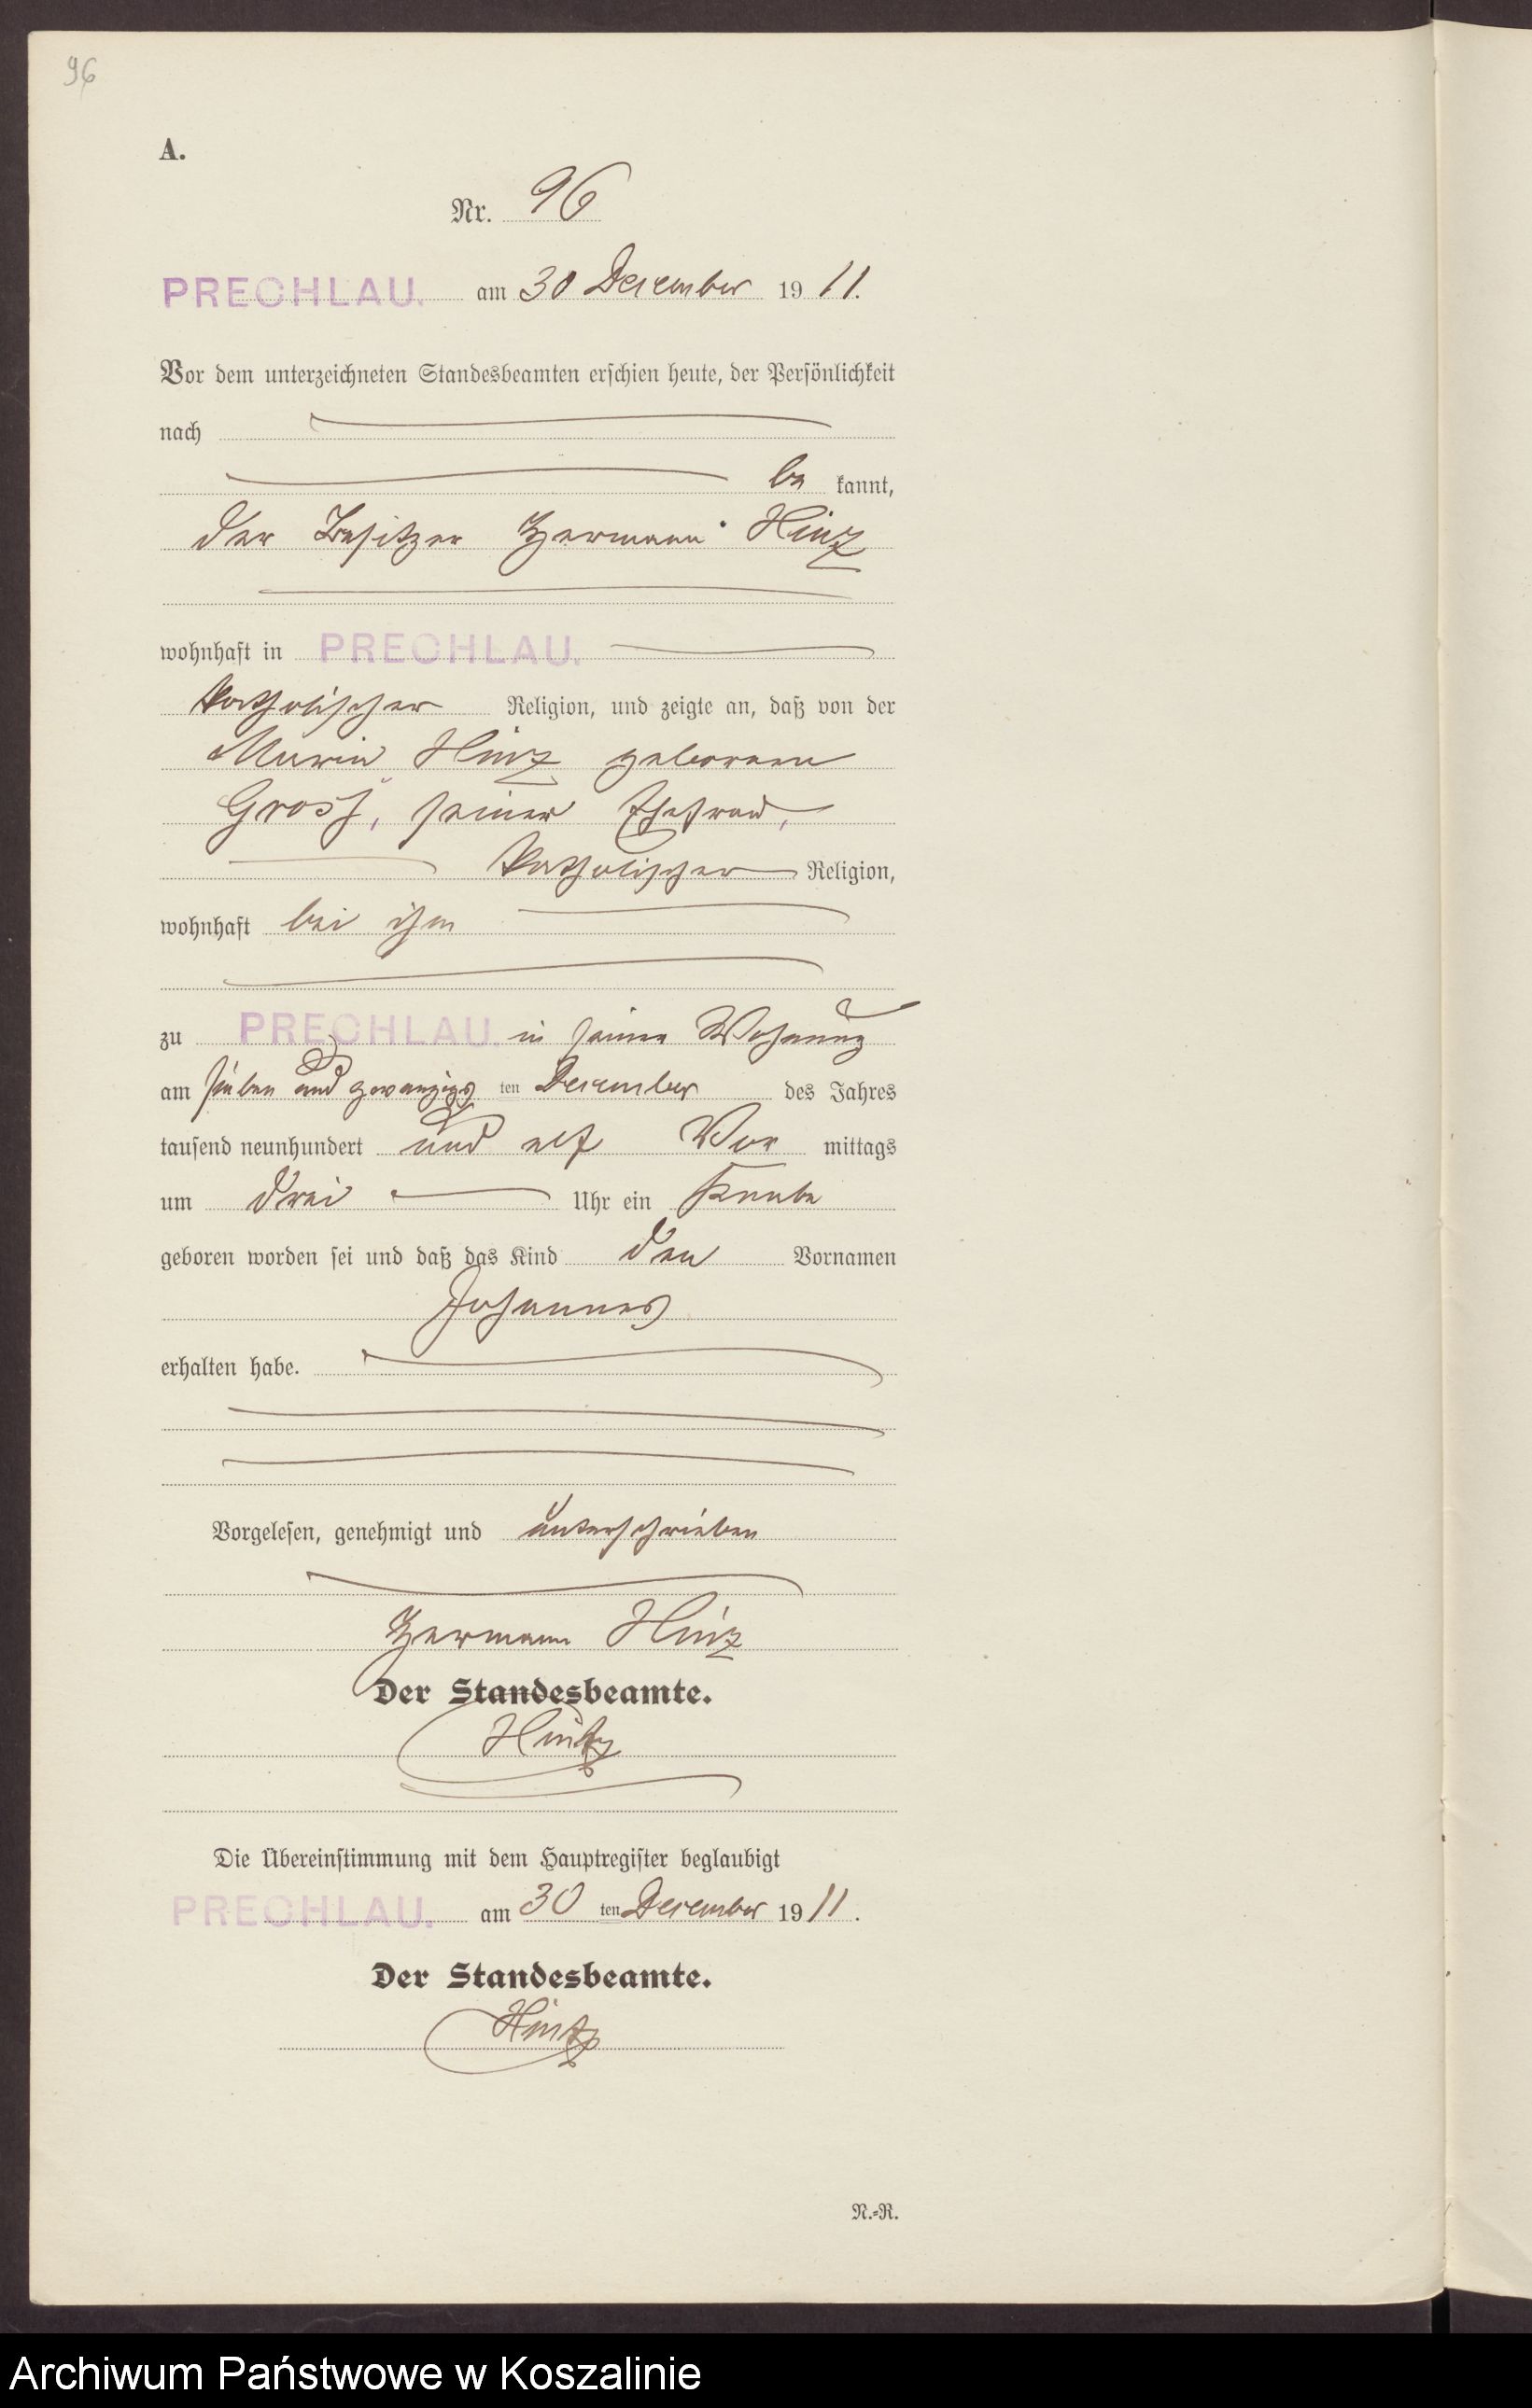 96
A.
Nr. 96
PRECHLAU. am 30 December 1911.
Vor dem unterzeichneten Standesbeamten erschien heute, der Persönlichkeit
nach
be kannt,
der Besitzer Hermann Hinz
wohnhaft in PRECHLAU.
katholischer Religion, und zeigte an, daß von der
Maria Hinz geborenen
Groß, seiner Ehefrau,
katholischer Religion,
wohnhaft bei ihm
zu PRECHLAU. in seiner Wohnung
am sieben und zwanzigsten December des Jahres
tausend neunhundert und elf Vor mittags
um drei Uhr ein Knabe
geboren worden sei und daß das Kind den Vornamen
Johannes
erhalten habe.
Vorgelesen, genehmigt und unterschrieben
Hermann Hinz
Der Standesbeamte.
Hintz
Die Übereinstimmung mit dem Hauptregister beglaubigt
PRECHLAU. am 30 ten December 1911.
Der Standesbeamte.
Hintz
N.=R.
Archiwum Państwowe w Koszalinie